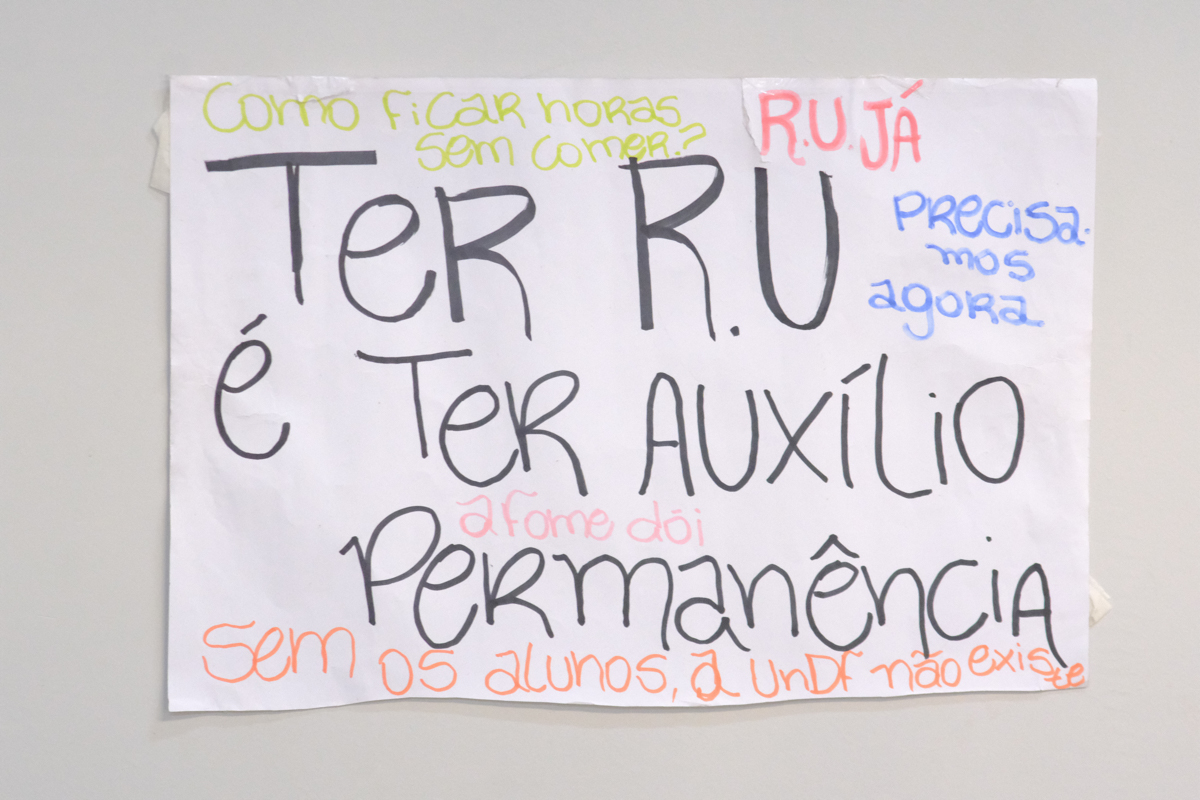 Como ficar horas
sem comer?
R.U. JÁ
Ter R.U
Precisa-
mos
agora
é Ter Auxílio
a fome dói
Permanência
Sem os alunos, a UnDF não exis
te